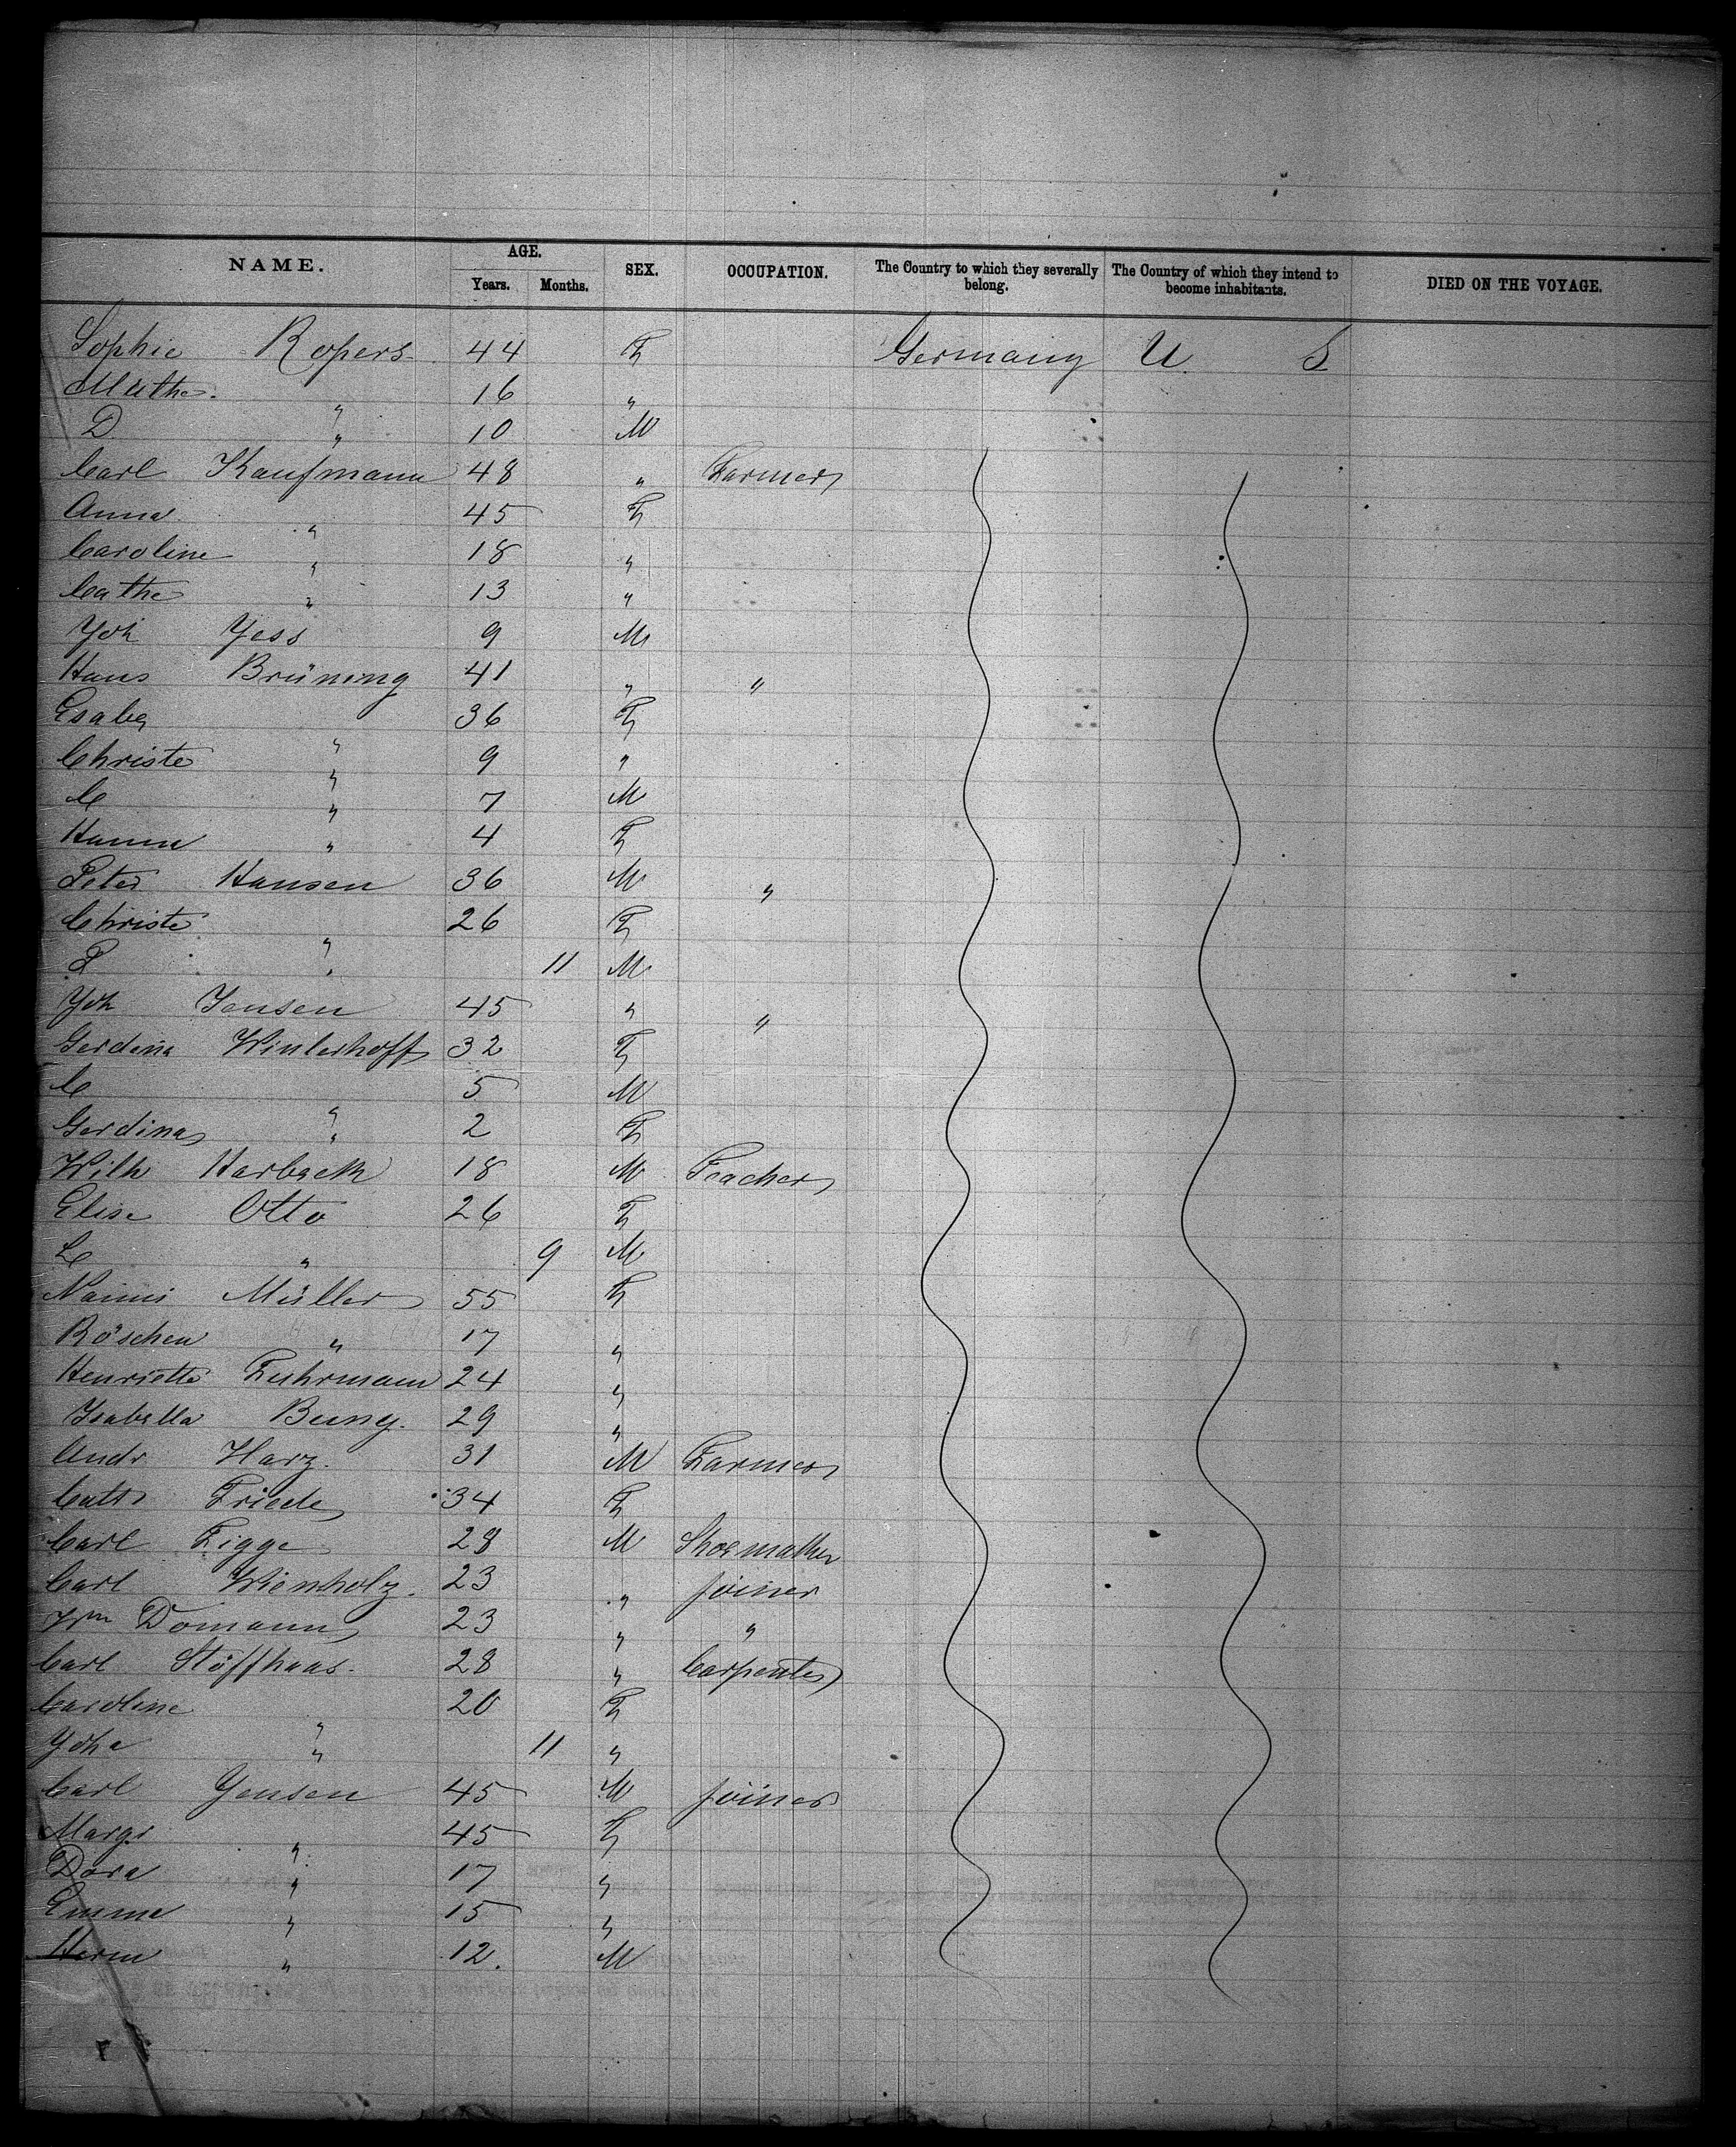 NAME. AGE. SEX. OCCUPATION. The Country to which they severally belong. The Country of which they intend to become inhabitants. DIED ON THE VOYAGE.
Years. Months.
Sophie Ropers 44 F Germany U. S
Mathe. " 16 "
D " 10 M
Carl Kaufmann 48 " Farmer
Anna " 45 F
Caroline " 18 "
Cathe " 13 "
Joh Jess 9 M
Hans Brüning 41 " "
Esabe 36 F
Christe " 9 "
C " 7 M
Hanna " 4 F
Peter Hansen 36 M "
Christe 26 F
P " 11 M
Joh Jensen 45 " "
Gerdena Winterhoff 32 F
C 5 M
Gerdina " 2 F
Wilh 18 M Teacher
Elise Otto 26 F
" 9 M
Nanni Müller 55 F
Röschen " 17 "
Henriette Fuhrmann 24 "
Isabella Bung. 29 "
Andr Harz. 31 M Farmer
Friede 34 F
Carl Figge 28 M Shoemaker
Carl Wienholz. 23 " joiner
Wm Domann 23 " "
Carl Stöffhaas. 28 " Carpenter
Caroline " 20 F
Joha " 11 "
Carl Jensen 45 M joiner
Margr " 45 F
Dora " 17 "
Emma " 15 "
Herm " 12. M